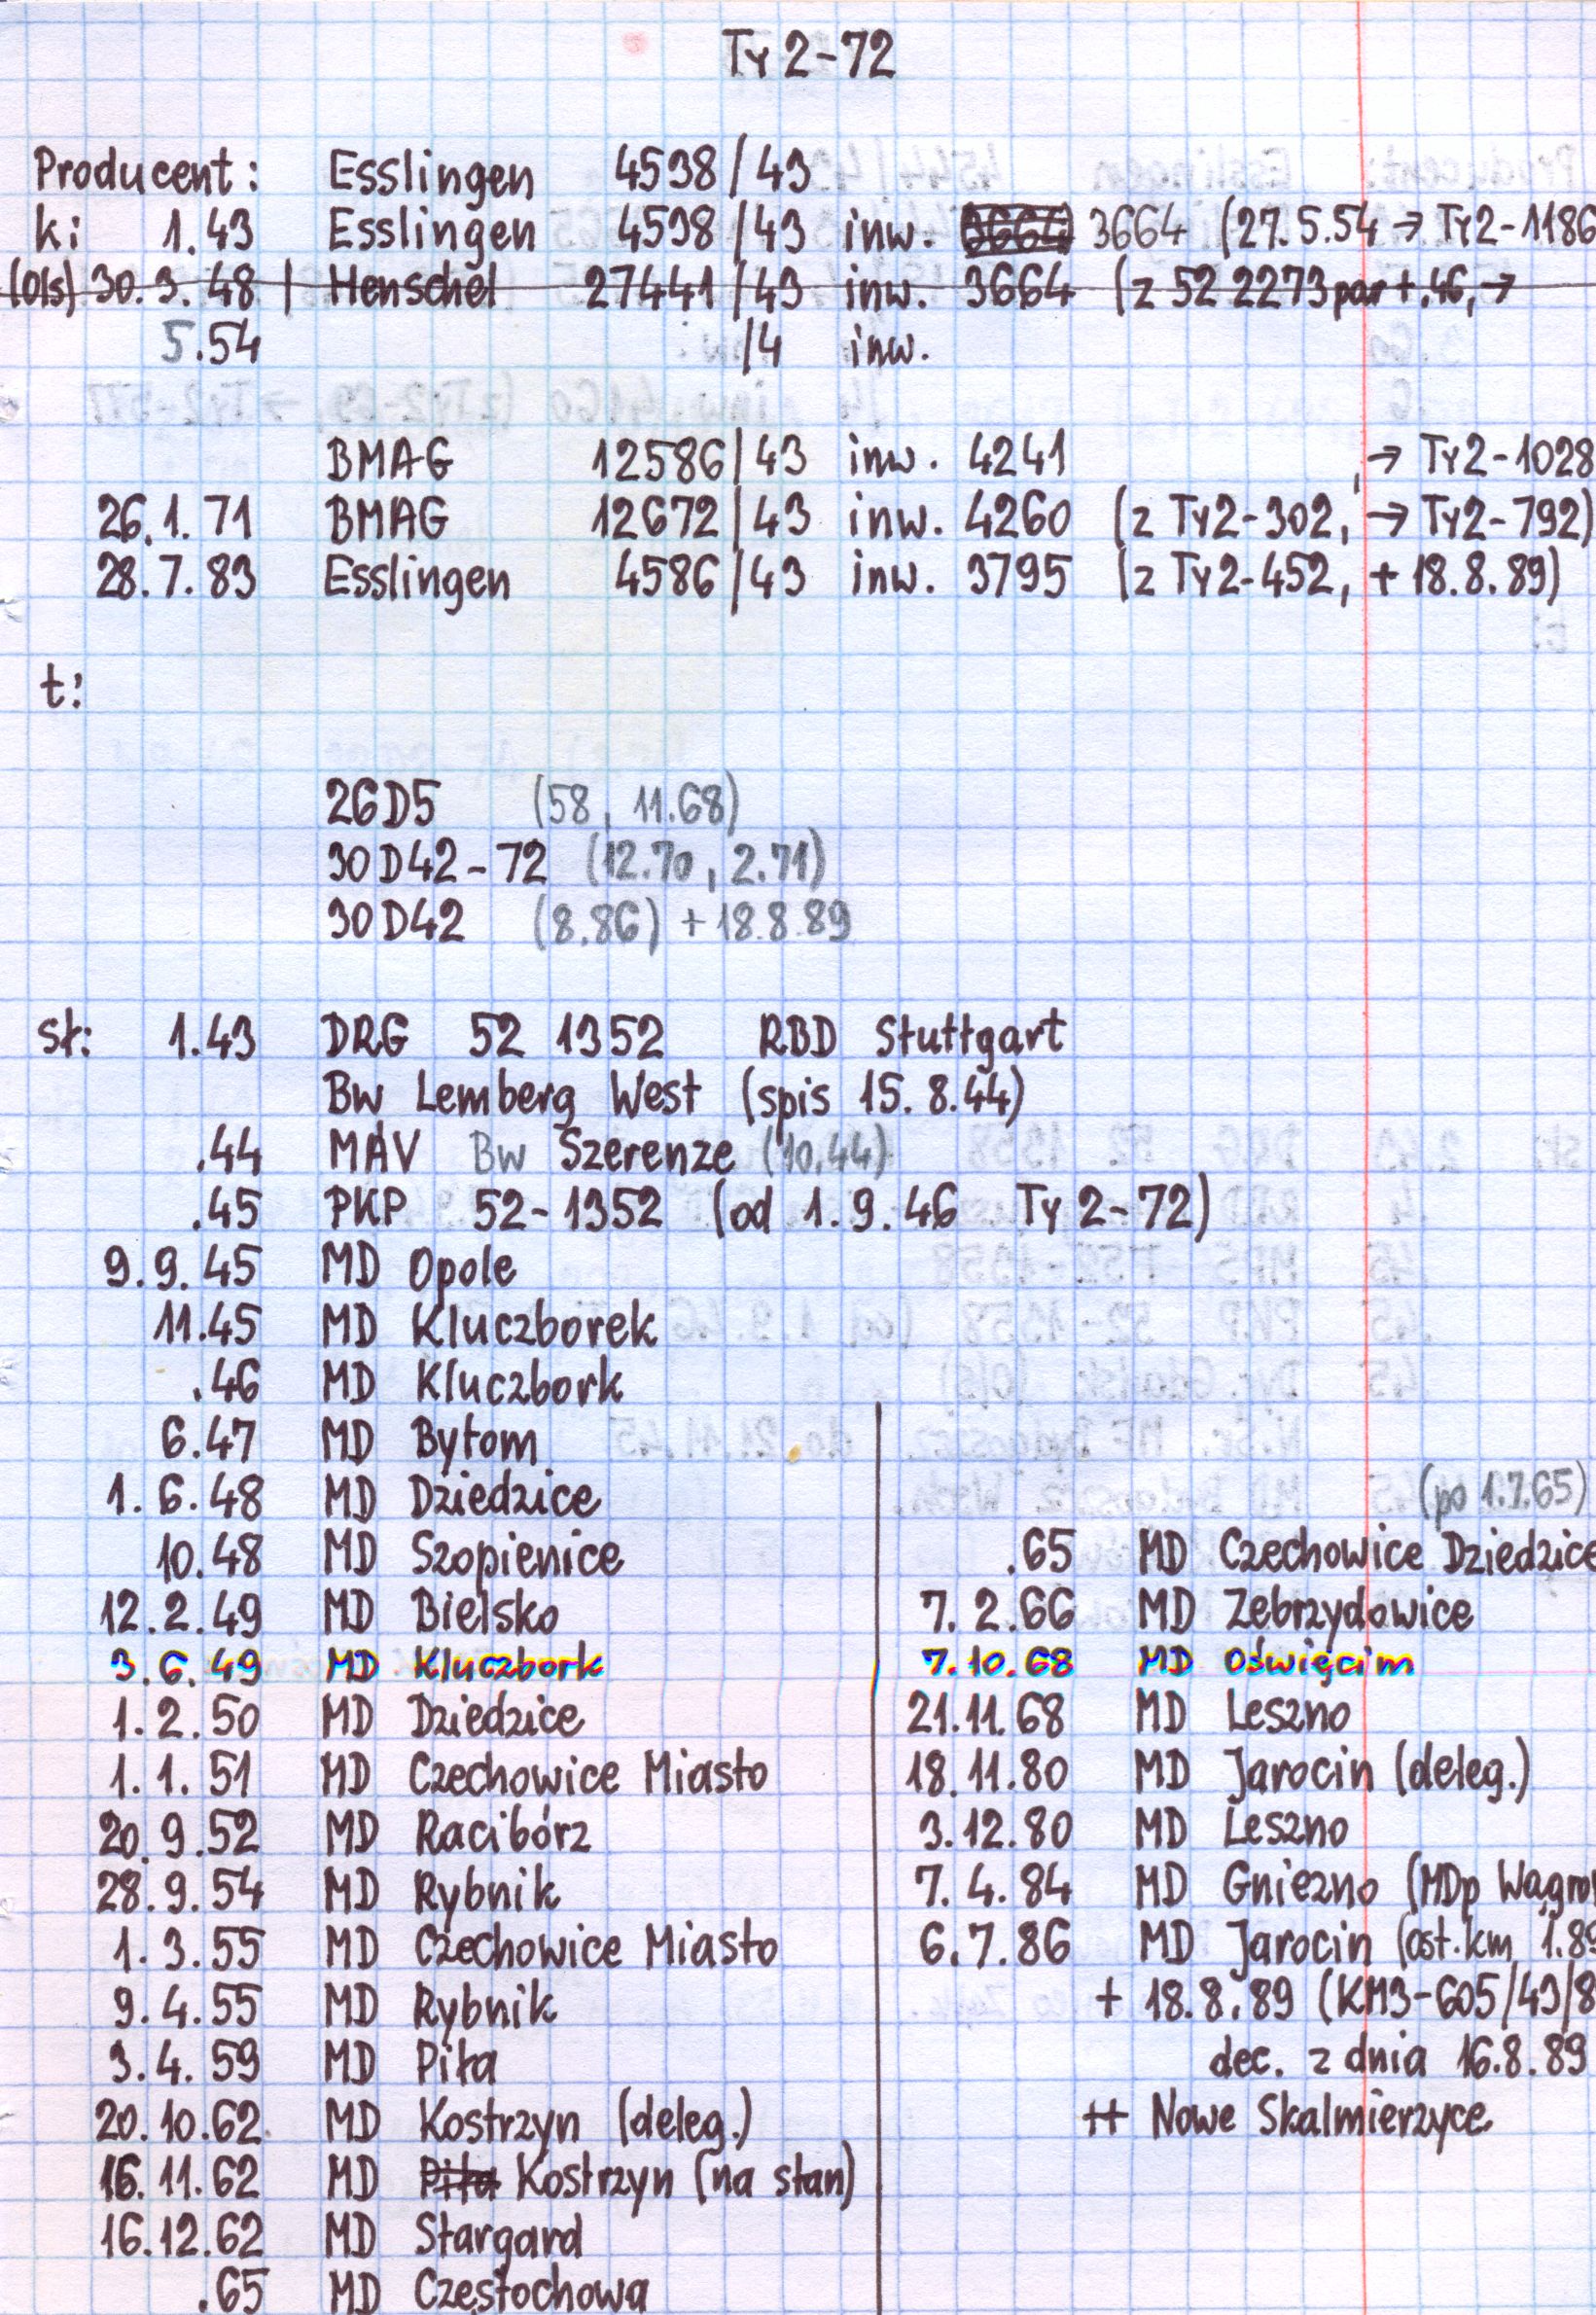 Ty 2-72
Producent: Esslingen 4538/43
ki 1.43 Esslingen 4538/43 inw. 3664 3664 (27.5.54 → Ty2-1186
(Ols) 30.3.48 | Henschel 27441/43 inw. 3664 (z 52 2273 par +.46, →
5.54 /4 inw.
BMAG 12586/43 inw. 4241 , → Ty2-1028
26.1.71 BMAG 12672/43 inw. 4260 (z Ty2-302, → Ty2-792)
28.7.83 Esslingen 4586/43 inw. 3795 (z Ty2-452, + 18.8.89)
t:
26D5 (58, 11.68)
30D42-72 (12.70, 2.71)
30D42 (8.86) + 18.8.89
sł: 1.43 DRG 52 1352 RBD Stuttgart
Bw Lemberg West (spis 15.8.44)
.44 MÁV Bw Szerenze (10.44)
.45 PKP 52-1352 (od 1.9.46 Ty 2-72)
9.9.45 MD Opole
11.45 MD Kluczborek
.46 MD Kluczbork
6.47 MD Bytom
1.6.48 MD Dziedzice
10.48 MD Szopienice
12.2.49 MD Bielsko
3.6.49 MD Kluczbork
1.2.50 MD Dziedzice
1.1.51 MD Czechowice Miasto
20.9.52 MD Racibórz
28.9.54 MD Rybnik
1.3.55 MD Czechowice Miasto
9.4.55 MD Rybnik
3.4.59 MD Piła
20.10.62 MD Kostrzyn (deleg.)
16.11.62 MD Piła Kostrzyn (na stan)
16.12.62 MD Stargard
.65 MD Częstochowa
(po 1.7.65)
.65 MD Czechowice Dziedzice
7.2.66 MD Zebrzydowice
7.10.68 MD Oświęcim
21.11.68 MD Leszno
18.11.80 MD Jarocin (deleg.)
3.12.80 MD Leszno
7.4.84 MD Gniezno (MDp Wągro
6.7.86 MD Jarocin (ost.km 1.89
+ 18.8.89 (KM3-605/43/8
dec. z dnia 16.8.89
++ Nowe Skalmierzyce